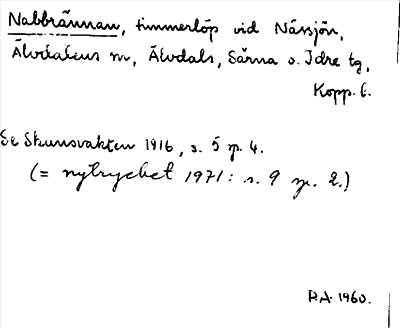 Nabbrännan, timmerlöp vid Nässjön,
Älvdalens sn, Älvdals, Särna o. Idre tg,
Kopp. l.
Se Skansvakten 1916, s. 5 sp. 4.
(= nytrycket 1971: s. 9 sp. 2.)
R.A. 1960.